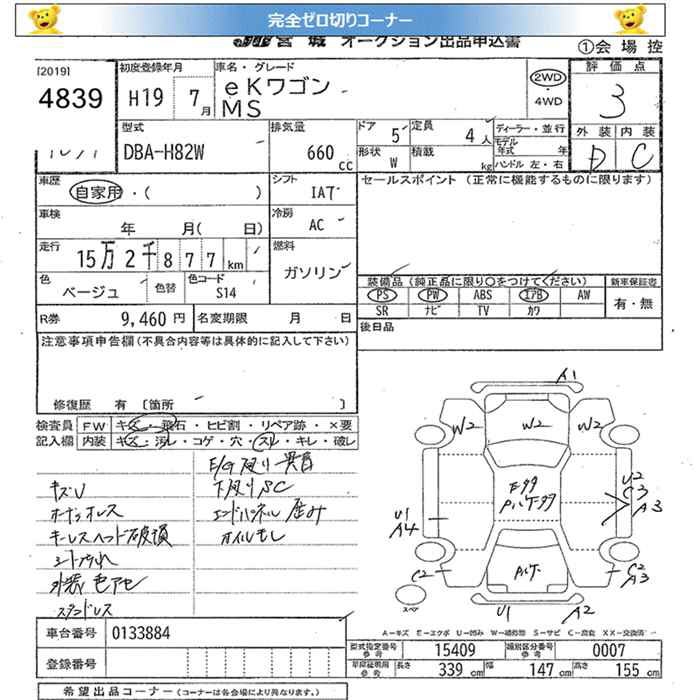 完全ゼロ切りコーナー
宮城 オークション出品申込書
①会場控
[2019]
4839
初度登録年月
H19 7月
車名・グレード
eKワゴン
MS
2WD
・4WD
評価点
3
外装 内装
D C
型式
DBA-H82W
排気量
660 cc
ドア 5
定員 4人
形状 W
積載 kg
ディーラー・並行
モデル年式 年
ハンドル 左・右
車歴
自家用・( )
シフト
IAT
セールスポイント (正常に機能するものに限ります)
車検
年 月( 日)
冷房
AC
走行
15万2千877km
燃料
ガソリン
色
ベージュ
色替
色コード
S14
装備品 (純正品に限り○をつけてください)
新車保証書
PS PW ABS エアB AW
有・無
SR ナビ TV カワ
R券 9,460円
名変期限 月 日
後日品
注意事項申告欄(不具合内容等は具体的に記入して下さい)
修復歴 有 〔箇所 〕
検査員 FW キズ・飛石・ヒビ割・リペア跡・×要
記入欄 内装 キズ・汚レ・コゲ・穴・スレ・キレ・破レ
キズU
キーレスヘッド破損
シート汚れ
外装色アセ
下廻りSC
エンドパネル歪み
オイルもし
A1
W2 W2 W2
U1
A4
U2
C3
A3
C2
C2
A3
U1 A2
スペア
A-キズ E-エクボ U-凹み W-補修跡 S-サビ C-腐食 XX-交換済
車台番号 0133884
型式指定番号 参考 15409
類別区分番号 参考 0007
登録番号
車庫証明用 参考 長さ 339 cm 幅 147 cm 高さ 155 cm
希望出品コーナー (コーナーは各会場により異なります。)